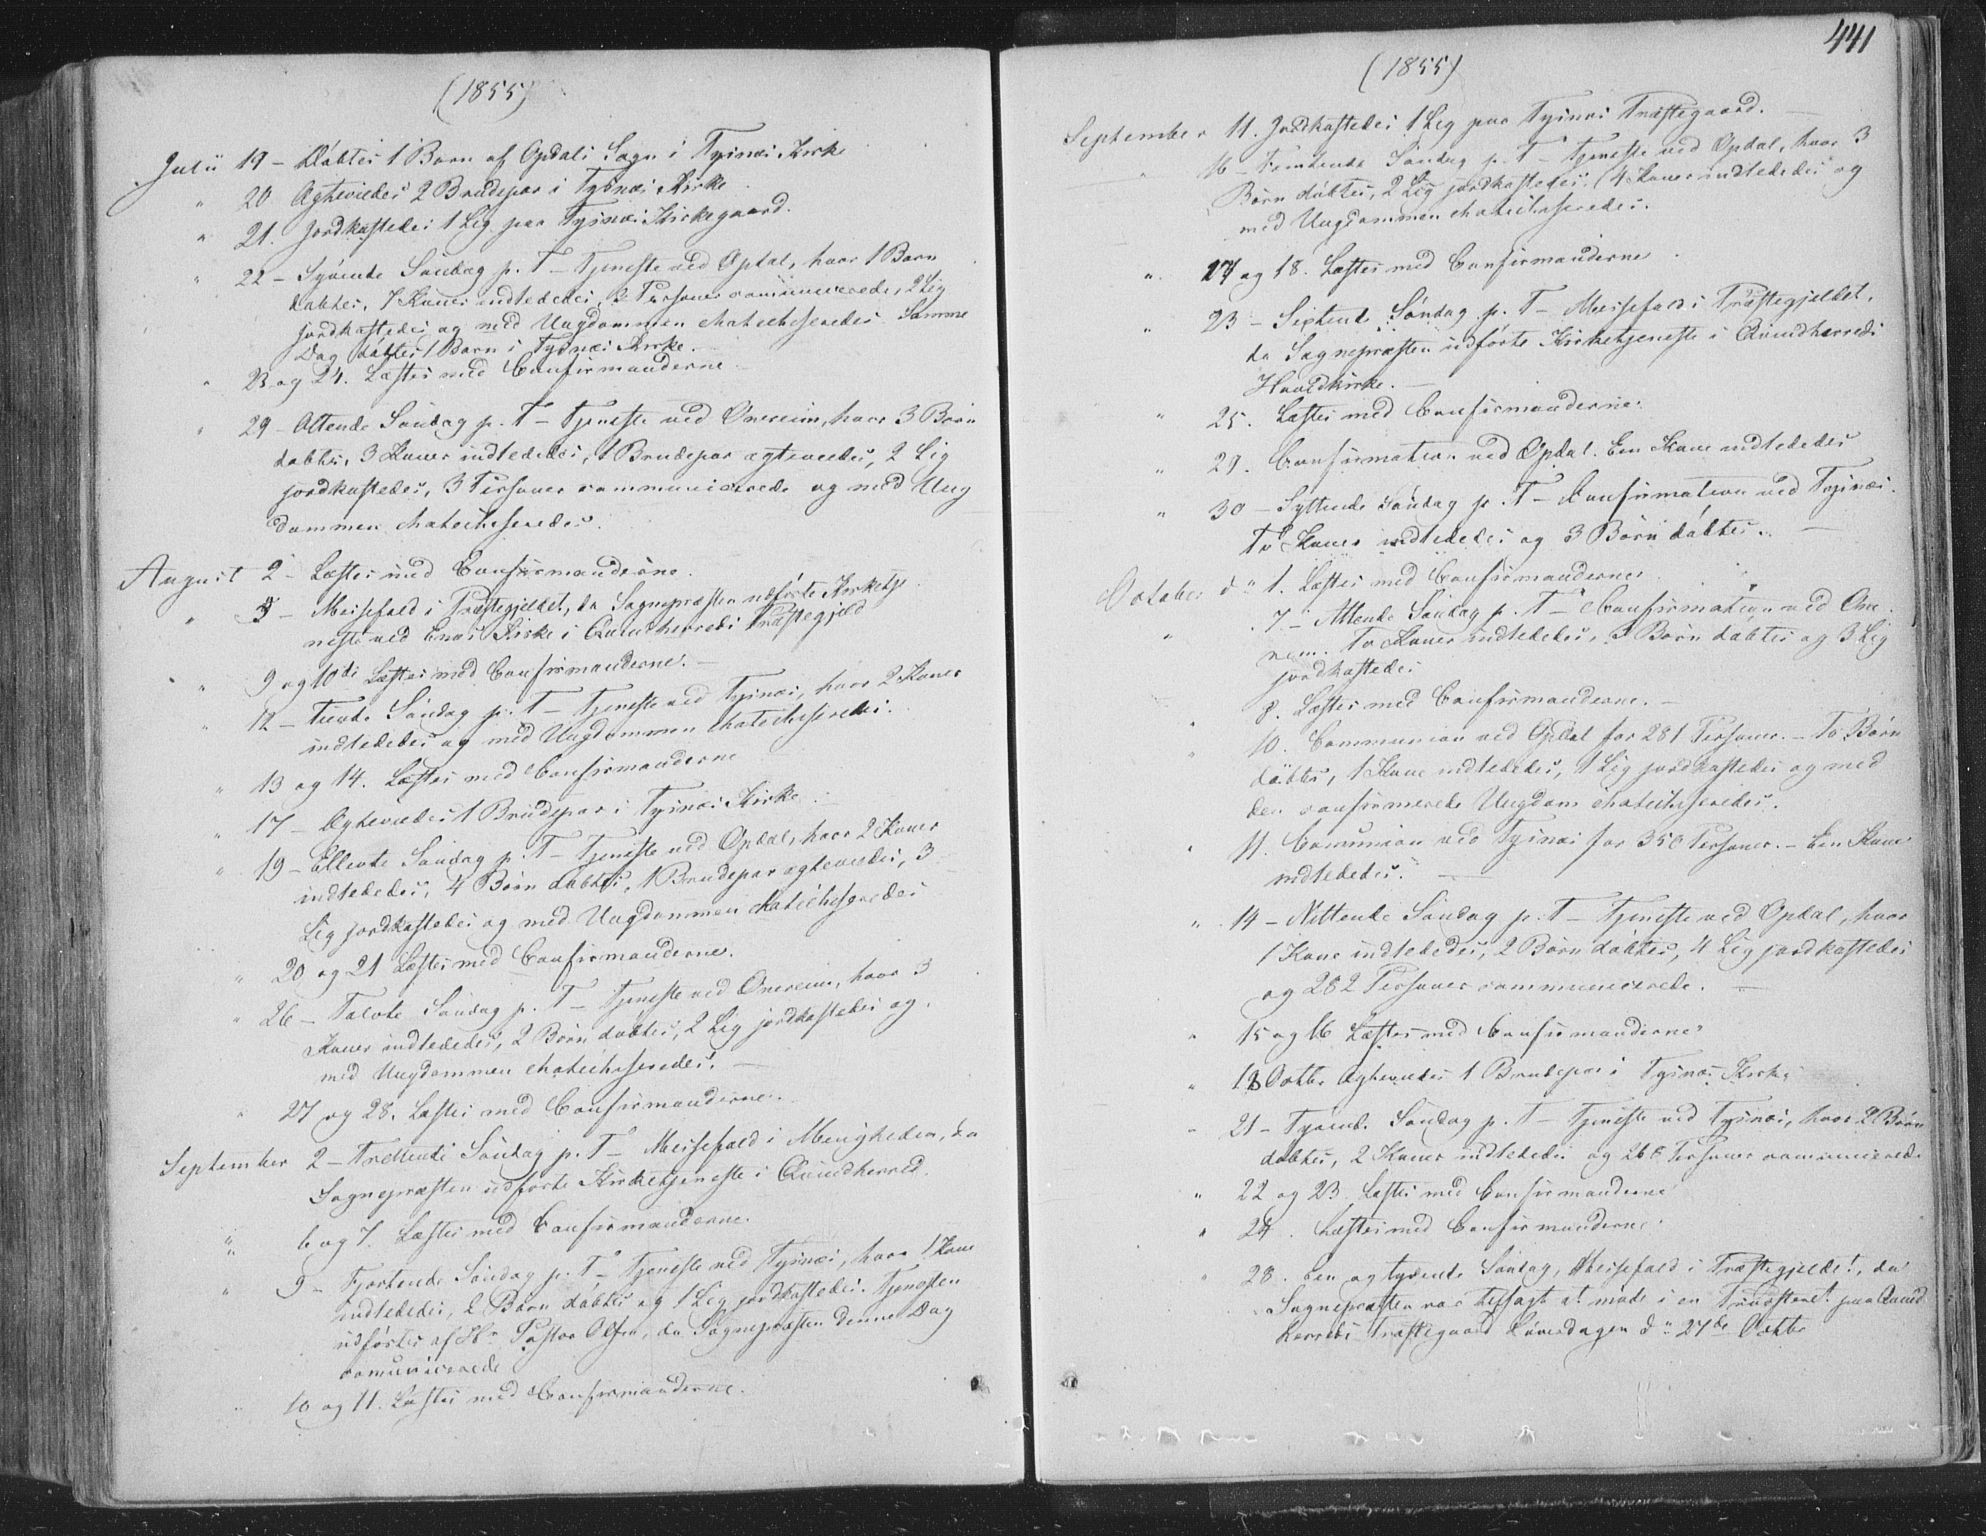 (1855)
Julii 19 – Döbtes 1 Barn af Opdals Sogn i Tysnæs Kirke
" 20 Ægteviedes 2 Brudepar i Tysnæs Kirke
" 21. Jordkastedes 1 Lig paa Tysnæs Kirkegaard.
" 22 – Syvende Søndag p. T – Tjeneste ved Opdal, hvor 1 Barn
döbtes, 7 Koner indlededes, 2 Personer communicerede, 2 Lig
jordkastedes og med Ungdommen chatechiseredes. Samme
Dag döbtes 1 Barn i Tysnæs Kirke.
" 23 og 24. Læstes med Confirmanderne –
" 29 – Ottende Søndag p. T – Tjeneste ved Onereim, hvor 3 Börn
döbtes, 3 Koner indlededes, 1 Brudepar ægteviedes, 2 Lig
jordkastedes, 3 Personer communicerede og med Ung
dommen chatechiseredes.
August 2 – Læstes med Confirmanderne.
" 5 – Messefald i Præstegjeldet, da Sognepræsten udförte Kirketje
neste ved Enæs Kirke i Qvindherreds Præstegjeld
" 9 og 10de Læstes med Confirmanderne. –
" 12 – Tiende Söndag p. T – Tjeneste ved Tysnæs, hvor 2 Koner
indlededes og med Ungdommen chatechiseredes.
" 13 og 14. Læstes med Confirmanderne
" 17 – Ægteviedes 1 Brudepar i Tysnæs Kirke.
" 19 – Ellevte Søndag p. T – Tjeneste ved Opdal, hvor 2 Koner
indlededes, 4 Börn döbtes, 1 Brudepar ægteviedes, 3
Lig jordkastedes og med Ungdommen chatechiseredes
" 20 og 21 Læstes med Confirmanderne.
" 26 – Tolvte Søndag p. T – Tjeneste ved Onereim, hvor 3
Koner indlededes, 2 Börn döbtes, 2 Lig jordkastedes og
med Ungdommen chatechiseredes. –
" 27 og 28. Læstes med Confirmanderne.
September 2 – Trettende Söndag p. T – Messefald i Menigheden, da
Sognepræsten udförte Kirketjeneste i Qvindherred.
" 6 og 7. Læstes med Confirmanderne.
" 9 – Fjortende Søndag p. T – Tjeneste ved Tysnæs, hvor 1 Kone
indlededes, 2 Börn döbtes og 1 Lig jordkastedes. Tjenesten
udförtes af Hr Pastor Olsen, da Sognepræsten denne Dag
comunicerede
" 10 og 11. Læstes med Confirmanderne.
441
(1855)
September 11. Jordkastedes 1 Lig paa Tysnæs Præstegaard. –
" 16 – Femtende Søndag p. T – Tjeneste ved Opdal, hvor 3
Börn döbtes, 2 Lig jordkastedes, 4 Koner indlededes og
med Ungdommen chatechiseredes.
" 17 og 18. Læstes med Confirmanderne
" 23 – Sextende Søndag p. T – Messefald i Præstegjeldet,
da Sognepræsten udförte Kirketjeneste i Qvindherreds
Hovedkirke. –
" 25. Læstes med Confirmanderne.
" 29. Confirmation ved Opdal. En Kone indlededes
" 30 – Syttende Søndag p. T – Confirmation ved Tysnæs.
To Koner indlededes og 3 Börn döbtes. –
October dn 1. Læstes med Confirmanderne
" 7 – Attende Søndag p. T – Confirmation ved One
reim. To Koner indlededes, 3 Börn döbtes og 3 Lig
jordkastedes
" 8. Læstes med Confirmanderne. –
" 10. Communion ved Opdal for 281 Personer. – To Börn
döbtes, 1 Kone indlededes, 1 Lig jordkastedes og med
den confirmerede Ungdom chatechiseredes.
" 11. Communion ved Tysnæs for 350 Personer. – En Kone
indlededes. –
" 14 – Nittende Søndag p. T – Tjeneste ved Opdal, hvor
1 Kone indlededes, 2 Börn döbtes, 4 Lig jordkastedes
og 282 Personer communicerede. –
" 15 og 16 Læstes med Confirmanderne
" 18 Octbr Ægteviedes 1 Brudepar i Tysnæs Kirke
" 21 – Tyvende Søndag p. T – Tjeneste ved Tysnæs, hvor 2 Börn
döbtes, 2 Koner indlededes og 268 Personer communicerede
" 22 og 23. Læstes med Confirmanderne
" 24. Læstes med Confirmanderne.
" 28. En og tyvende Søndag, Messefald i Præstegjeldet, da
Sognepræsten var tilsagt at möde i en Provsteret paa Qvind
herreds Præstegaard Löverdagen dn 27de Octbr